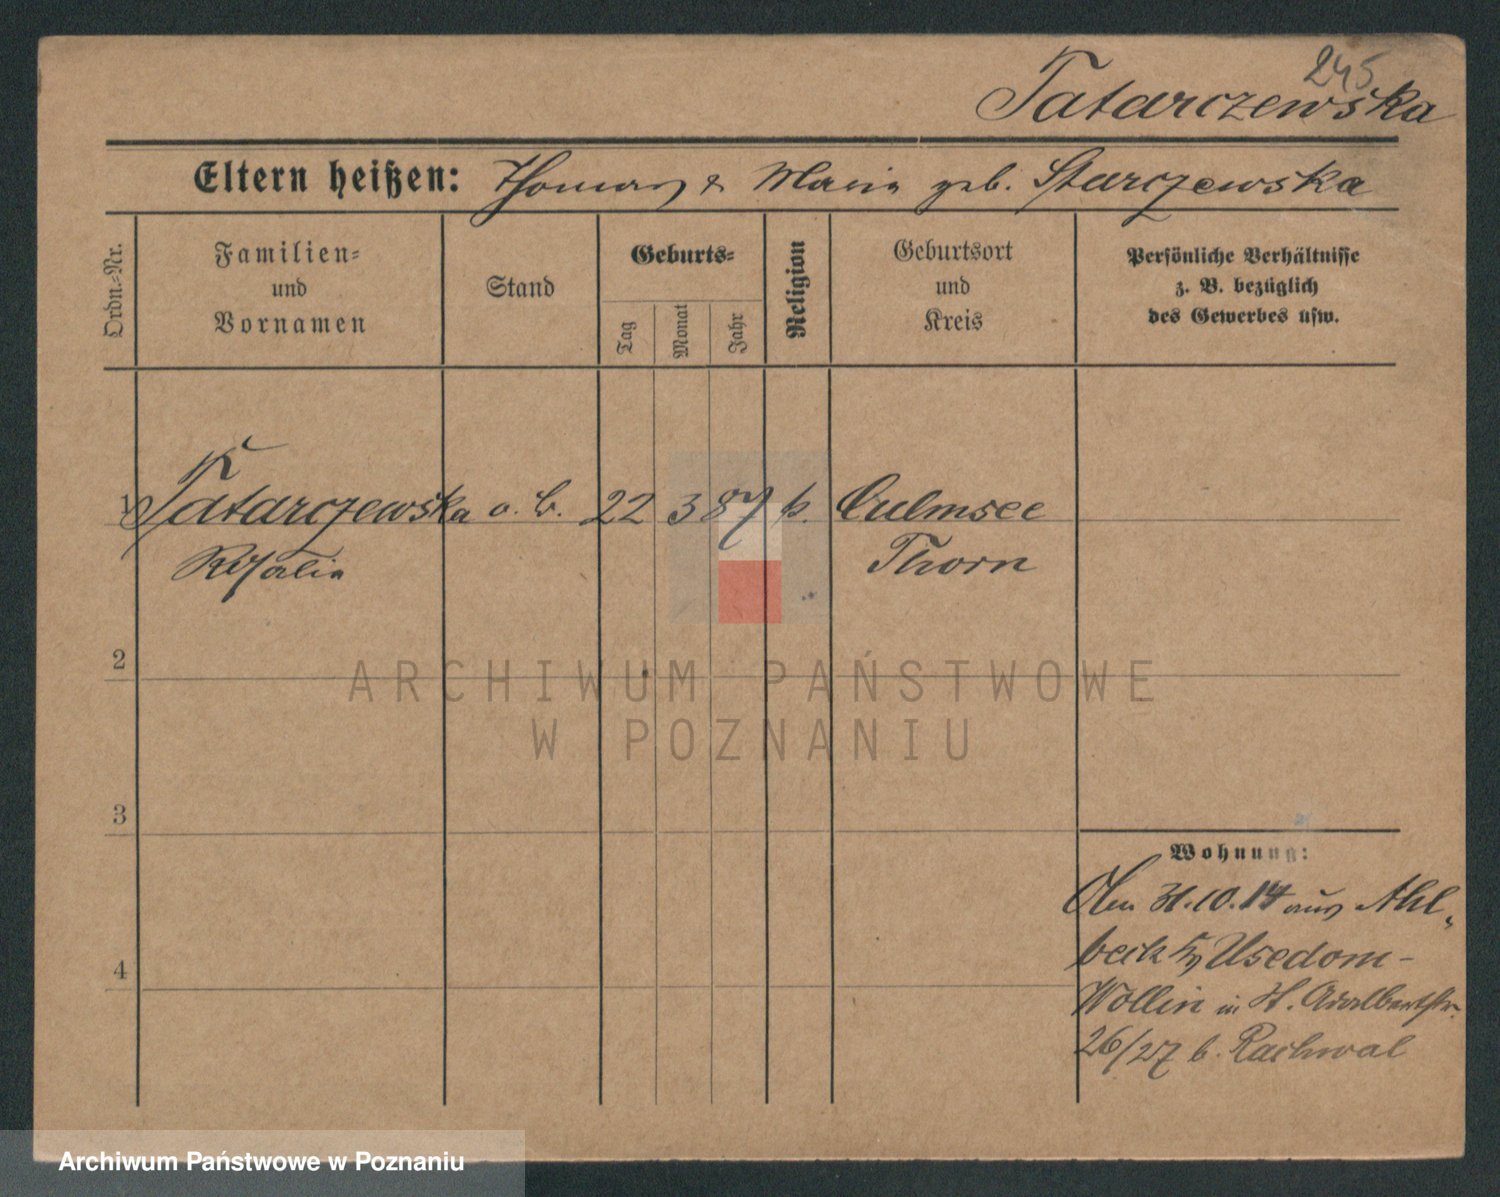 245
Tatarczewska
Eltern heißen: Thomas & Maria geb. Starczewska
Ordn.-Nr.
Familien-
und
Vornamen
Stand
Geburts-
Tag
Monat
Jahr
Religion
Geburtsort
und
Kreis
Persönliche Verhältnisse
z. B. bezüglich
des Gewerbes usw.
1 Tatarczewska o. B. 22 3 87 k. Culmsee
Rosalia Thorn
2
3
4
ARCHIWUM PAŃSTWOWE
W POZNANIU
Wohnung:
Am 31.10.14 aus Ahl-
beck Usedom-
Wollin in St. Adalbertstr.
26/27 b. Rachwal
Archiwum Państwowe w Poznaniu